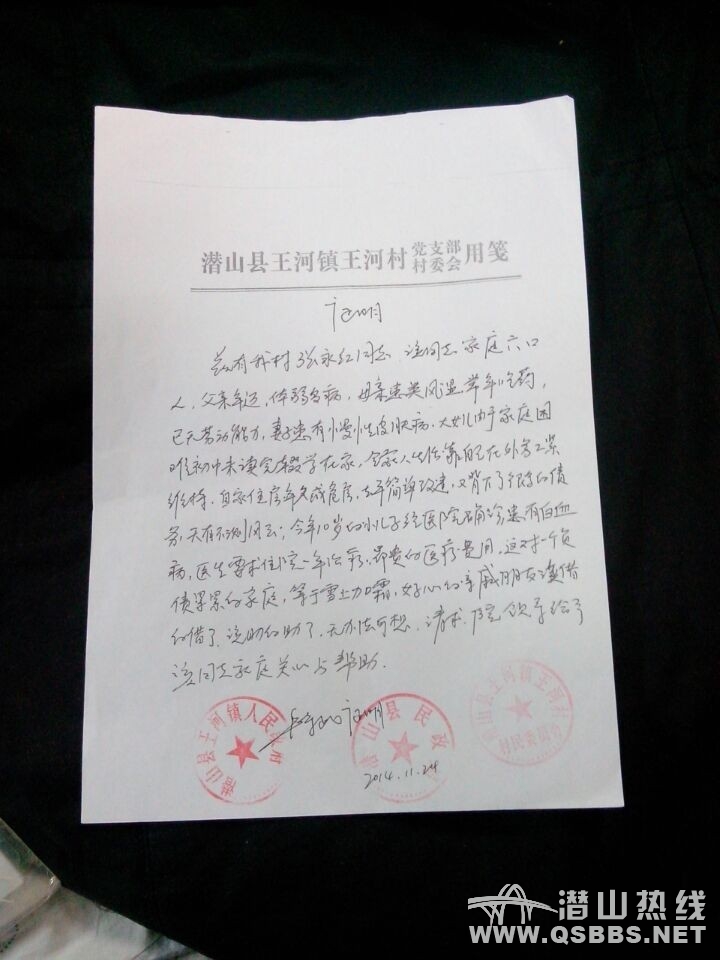 潜山县王河镇王河村党支部村委会用笺
证明
兹有我村张永红同志 该同志家庭六口
人，父亲年迈，体弱多病，母亲患类风湿常年吃药，
已无劳动能力，妻子患有慢性皮肤病，大女儿由于家庭困
难初中未读完辍学在家，全家人生活靠自己在外务工紧
维持，自家住房年久成危房，去年简单改建，又背下了很多的债
务，天有不测风云；今年10岁的小儿子经医院确诊患有白血
病，医生要求住院一年治疗，昂贵的医疗费用，这对一个负
债累累的家庭，等于雪上加霜，好心的亲戚朋友该借
的借了，该助的助了，无办法可想，请求院领导给予
该同志家庭关心与帮助.
特此证明
潜山县王河镇人民政府
潜山县民政
潜山县王河镇王河村
村民委员会
2014.11.24
潜山热线
WWW.QSBBS.NET